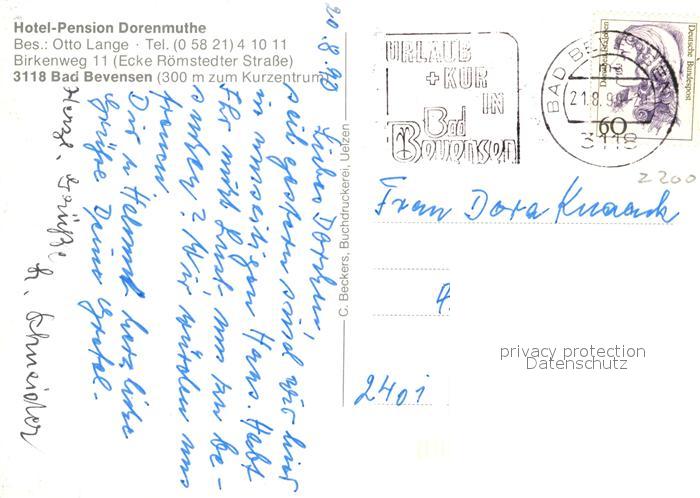 Hotel-Pension Dorenmuthe
Bes.: Otto Lange · Tel. (0 58 21) 4 10 11
Birkenweg 11 (Ecke Römstedter Straße)
3118 Bad Bevensen (300 m zum Kurzentrum)
20.8.90
Liebes Dorchen,
seit gestern sind wir hier
in unseitigen Haus. Habt
Ihr nicht Lust uns zu be-
suchen? Wir würden uns
freuen
Dir u Helmut herzliche
Grüße Deine Gretel.
Herzl. Grüße
H. Schneider
C. Beckers, Buchdruckerei, Uelzen
URLAUB
+ KUR
IN
Bad
Bevensen
BAD BEVENSEN
21.8.90
3118
Deutsche Bundespost
60
2200
Frau Dora Knaack
2401
privacy protection
Datenschutz